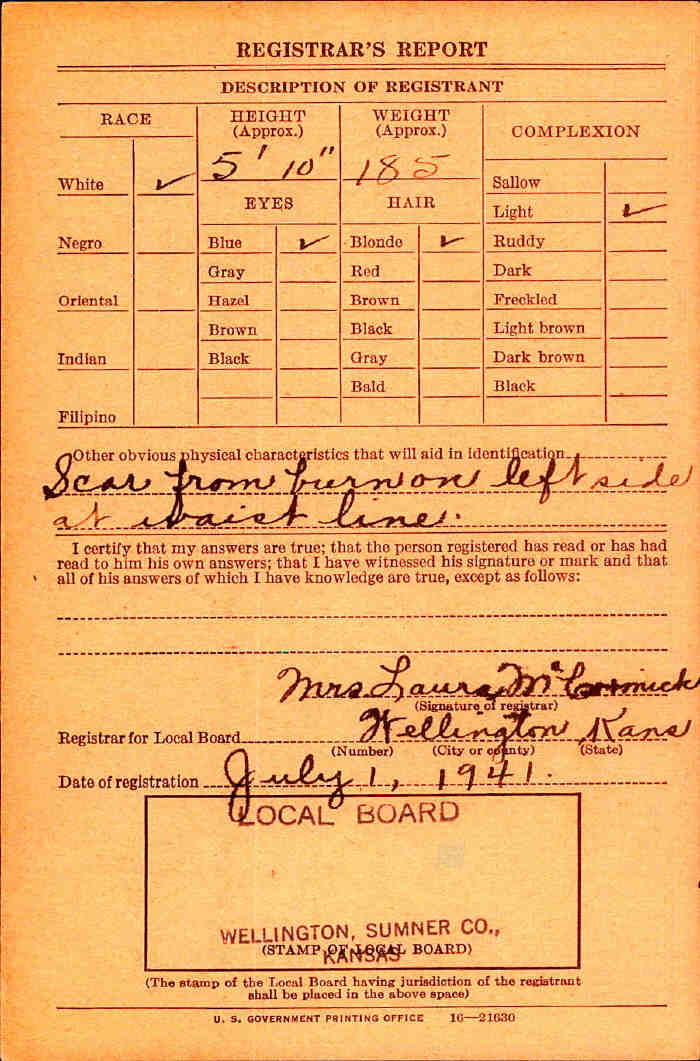 REGISTRAR'S REPORT
DESCRIPTION OF REGISTRANT
RACE
HEIGHT
(Approx.)
WEIGHT
(Approx.)
COMPLEXION
5' 10"
185
White ✓
Sallow
EYES
HAIR
Light ✓
Negro
Blue ✓
Blonde ✓
Ruddy
Gray
Red
Dark
Oriental
Hazel
Brown
Freckled
Brown
Black
Light brown
Indian
Black
Gray
Dark brown
Bald
Black
Filipino
Other obvious physical characteristics that will aid in identification
Scar from burn on left side
at waist line.
I certify that my answers are true; that the person registered has read or has had
read to him his own answers; that I have witnessed his signature or mark and that
all of his answers of which I have knowledge are true, except as follows:
Mrs. Laura McCormick
(Signature of registrar)
Registrar for Local Board Wellington Kans
(Number) (City or county) (State)
Date of registration July 1, 1941.
LOCAL BOARD
WELLINGTON, SUMNER CO.,
(STAMP OF LOCAL BOARD)
KANSAS
(The stamp of the Local Board having jurisdiction of the registrant
shall be placed in the above space)
U. S. GOVERNMENT PRINTING OFFICE 16—21630